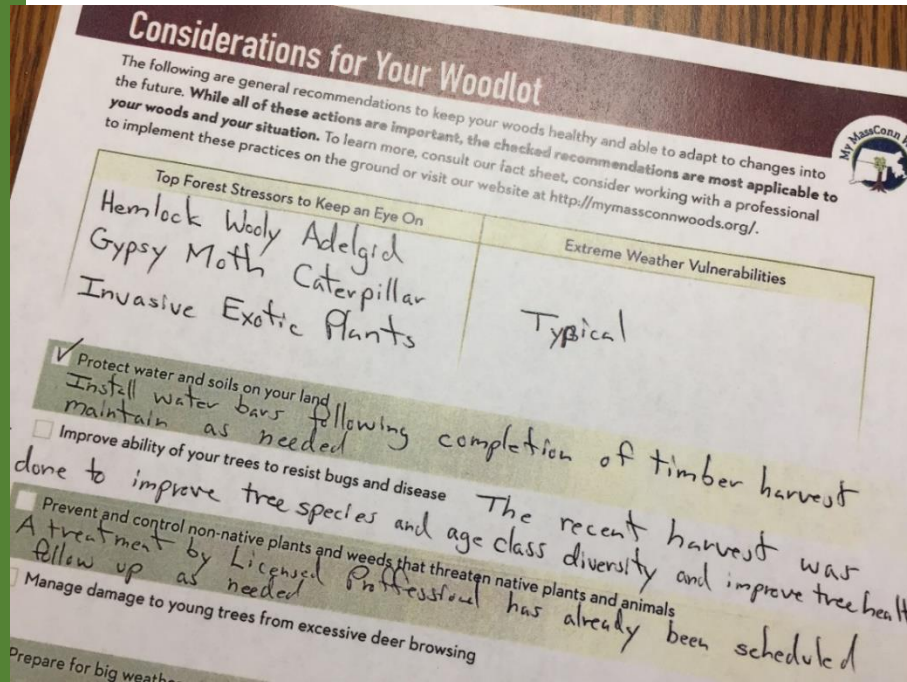 Considerations for Your Woodlot
The following are general recommendations to keep your woods healthy and able to adapt to changes into
the future. While all of these actions are important, the checked recommendations are most applicable to
your woods and your situation. To learn more, consult our fact sheet, consider working with a professional
to implement these practices on the ground or visit our website at http://mymassconnwoods.org/.
My MassConn W
Top Forest Stressors to Keep an Eye On
Hemlock Wooly Adelgid
Gypsy Moth Caterpillar
Invasive Exotic Plants
Extreme Weather Vulnerabilities
Typical
✓ Protect water and soils on your land
Install water bars following completion of timber harvest
maintain as needed
Improve ability of your trees to resist bugs and disease The recent harvest was
done to improve tree species and age class diversity and improve tree healt
Prevent and control non-native plants and weeds that threaten native plants and animals
A treatment by Licensed Proffessional has already been scheduled
follow up as needed
Manage damage to young trees from excessive deer browsing
Prepare for big weathe